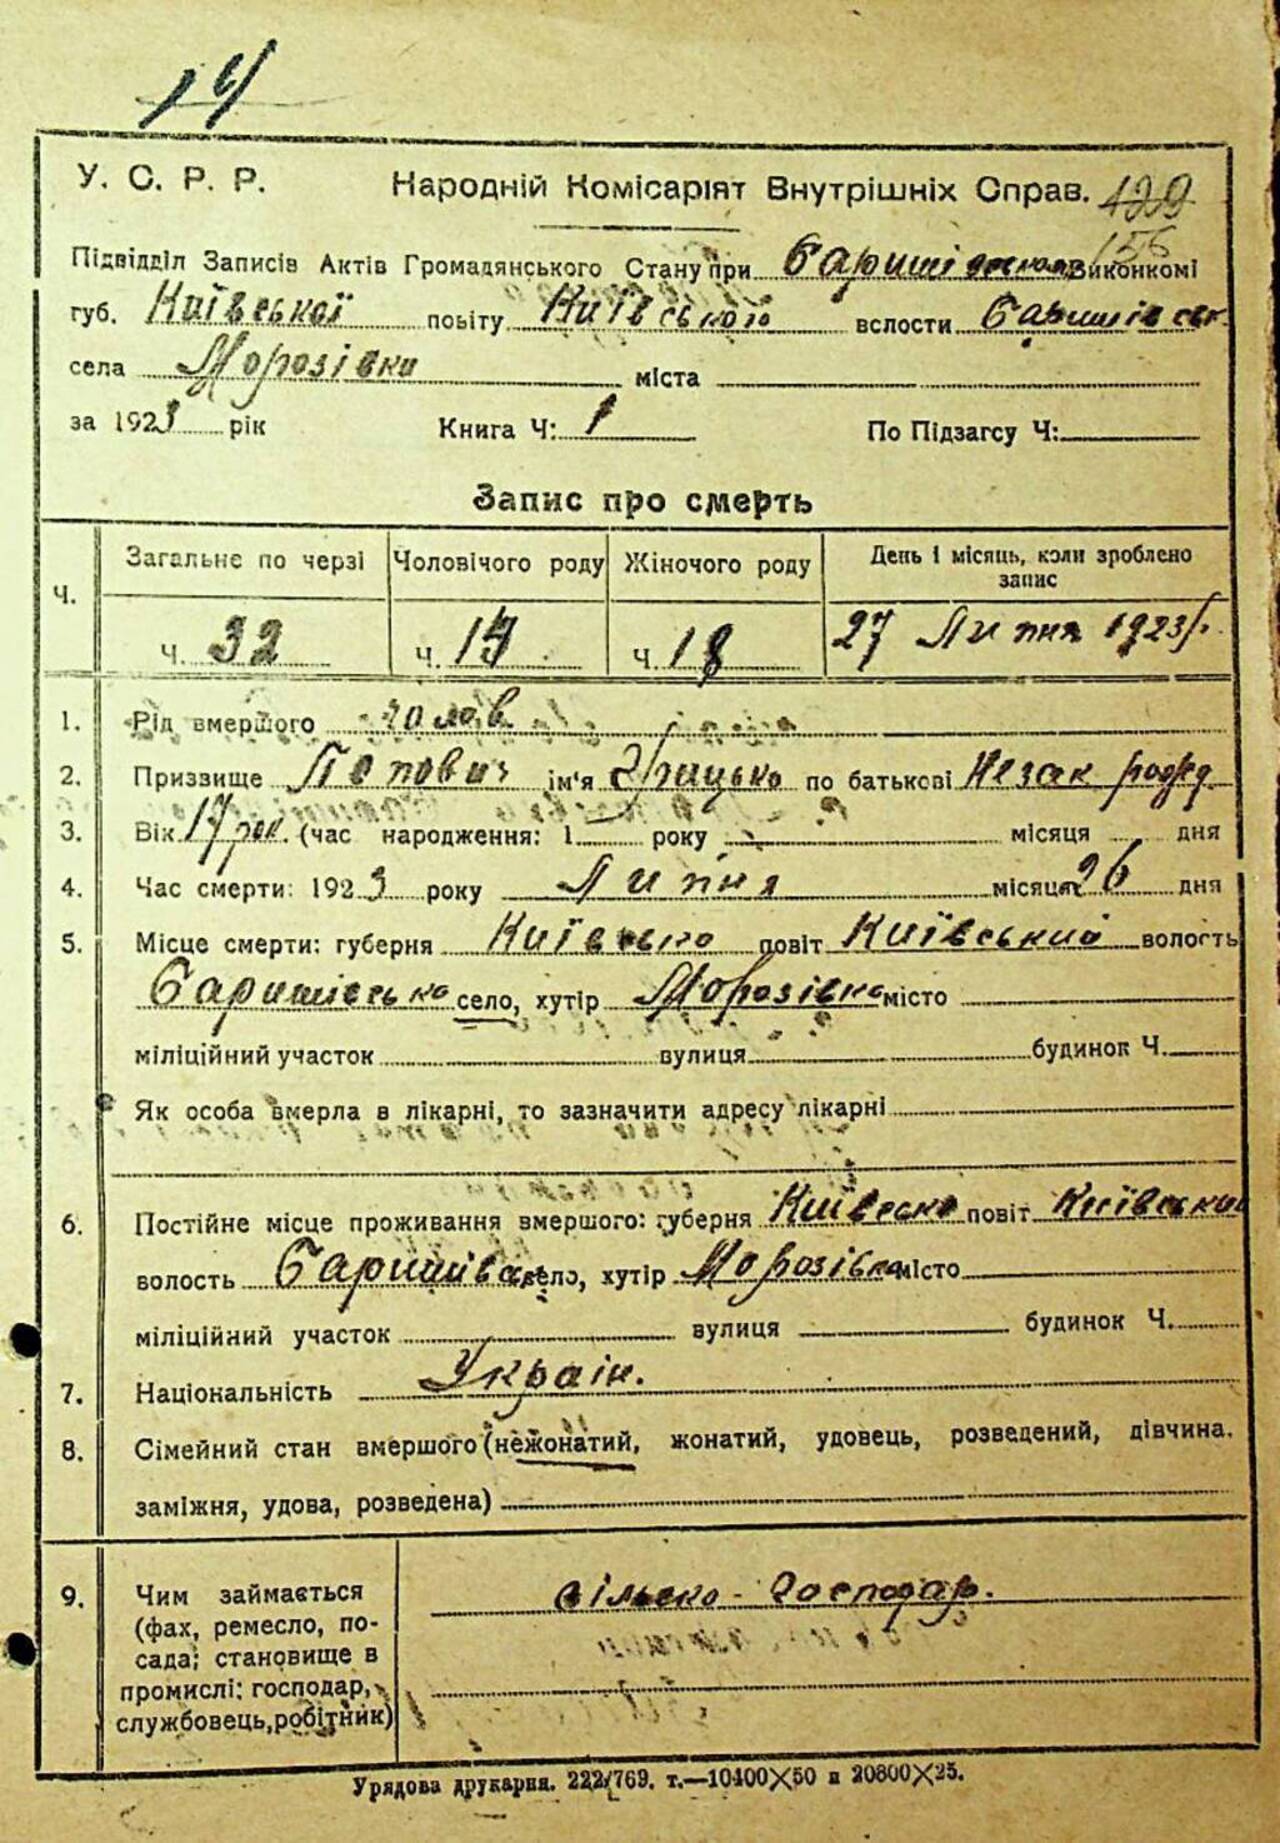 14
У. С. Р. Р. Народній Комісаріят Внутрішніх Справ. 129
156
Підвідділ Записів Актів Громадянського Стану при Баришівском Виконкомі
губ. Київської повіту Київського волости Баришівськ.
села Морозівки міста
за 1923 рік Книга Ч: 1 По Підзагсу Ч:
Запис про смерть
Ч. Загальне по черзі Чоловічого роду Жіночого роду День і місяць, коли зроблено запис
Ч. 32 Ч. 14 Ч. 18 27 Липня 1923 р.
1. Рід вмершого чолов.
2. Призвище Попович ім'я Грицько по батькові Незак рожд.
3. Вік 17 рок. (час народження: 1 року місяця дня
4. Час смерти: 1923 року Липня місяця 26 дня
5. Місце смерти: губерня Київсько повіт Київський волость
Баришівсько село, хутір Морозівка місто
міліційний участок вулиця будинок Ч.
Як особа вмерла в лікарні, то зазначити адресу лікарні
6. Постійне місце проживання вмершого: губерня Київсько повіт Київський
волость Баришівсь село, хутір Морозівка місто
міліційний участок вулиця будинок Ч.
7. Національність Україн.
8. Сімейний стан вмершого (нежонатий, жонатий, удовець, розведений, дівчина.
заміжня, удова, розведена)
9. Чим займається сільсько-господар.
(фах, ремесло, по-
сада; становище в
промислі: господар,
службовець, робітник)
Урядова друкарня. 222/769. т.—10400×50 и 20800×25.